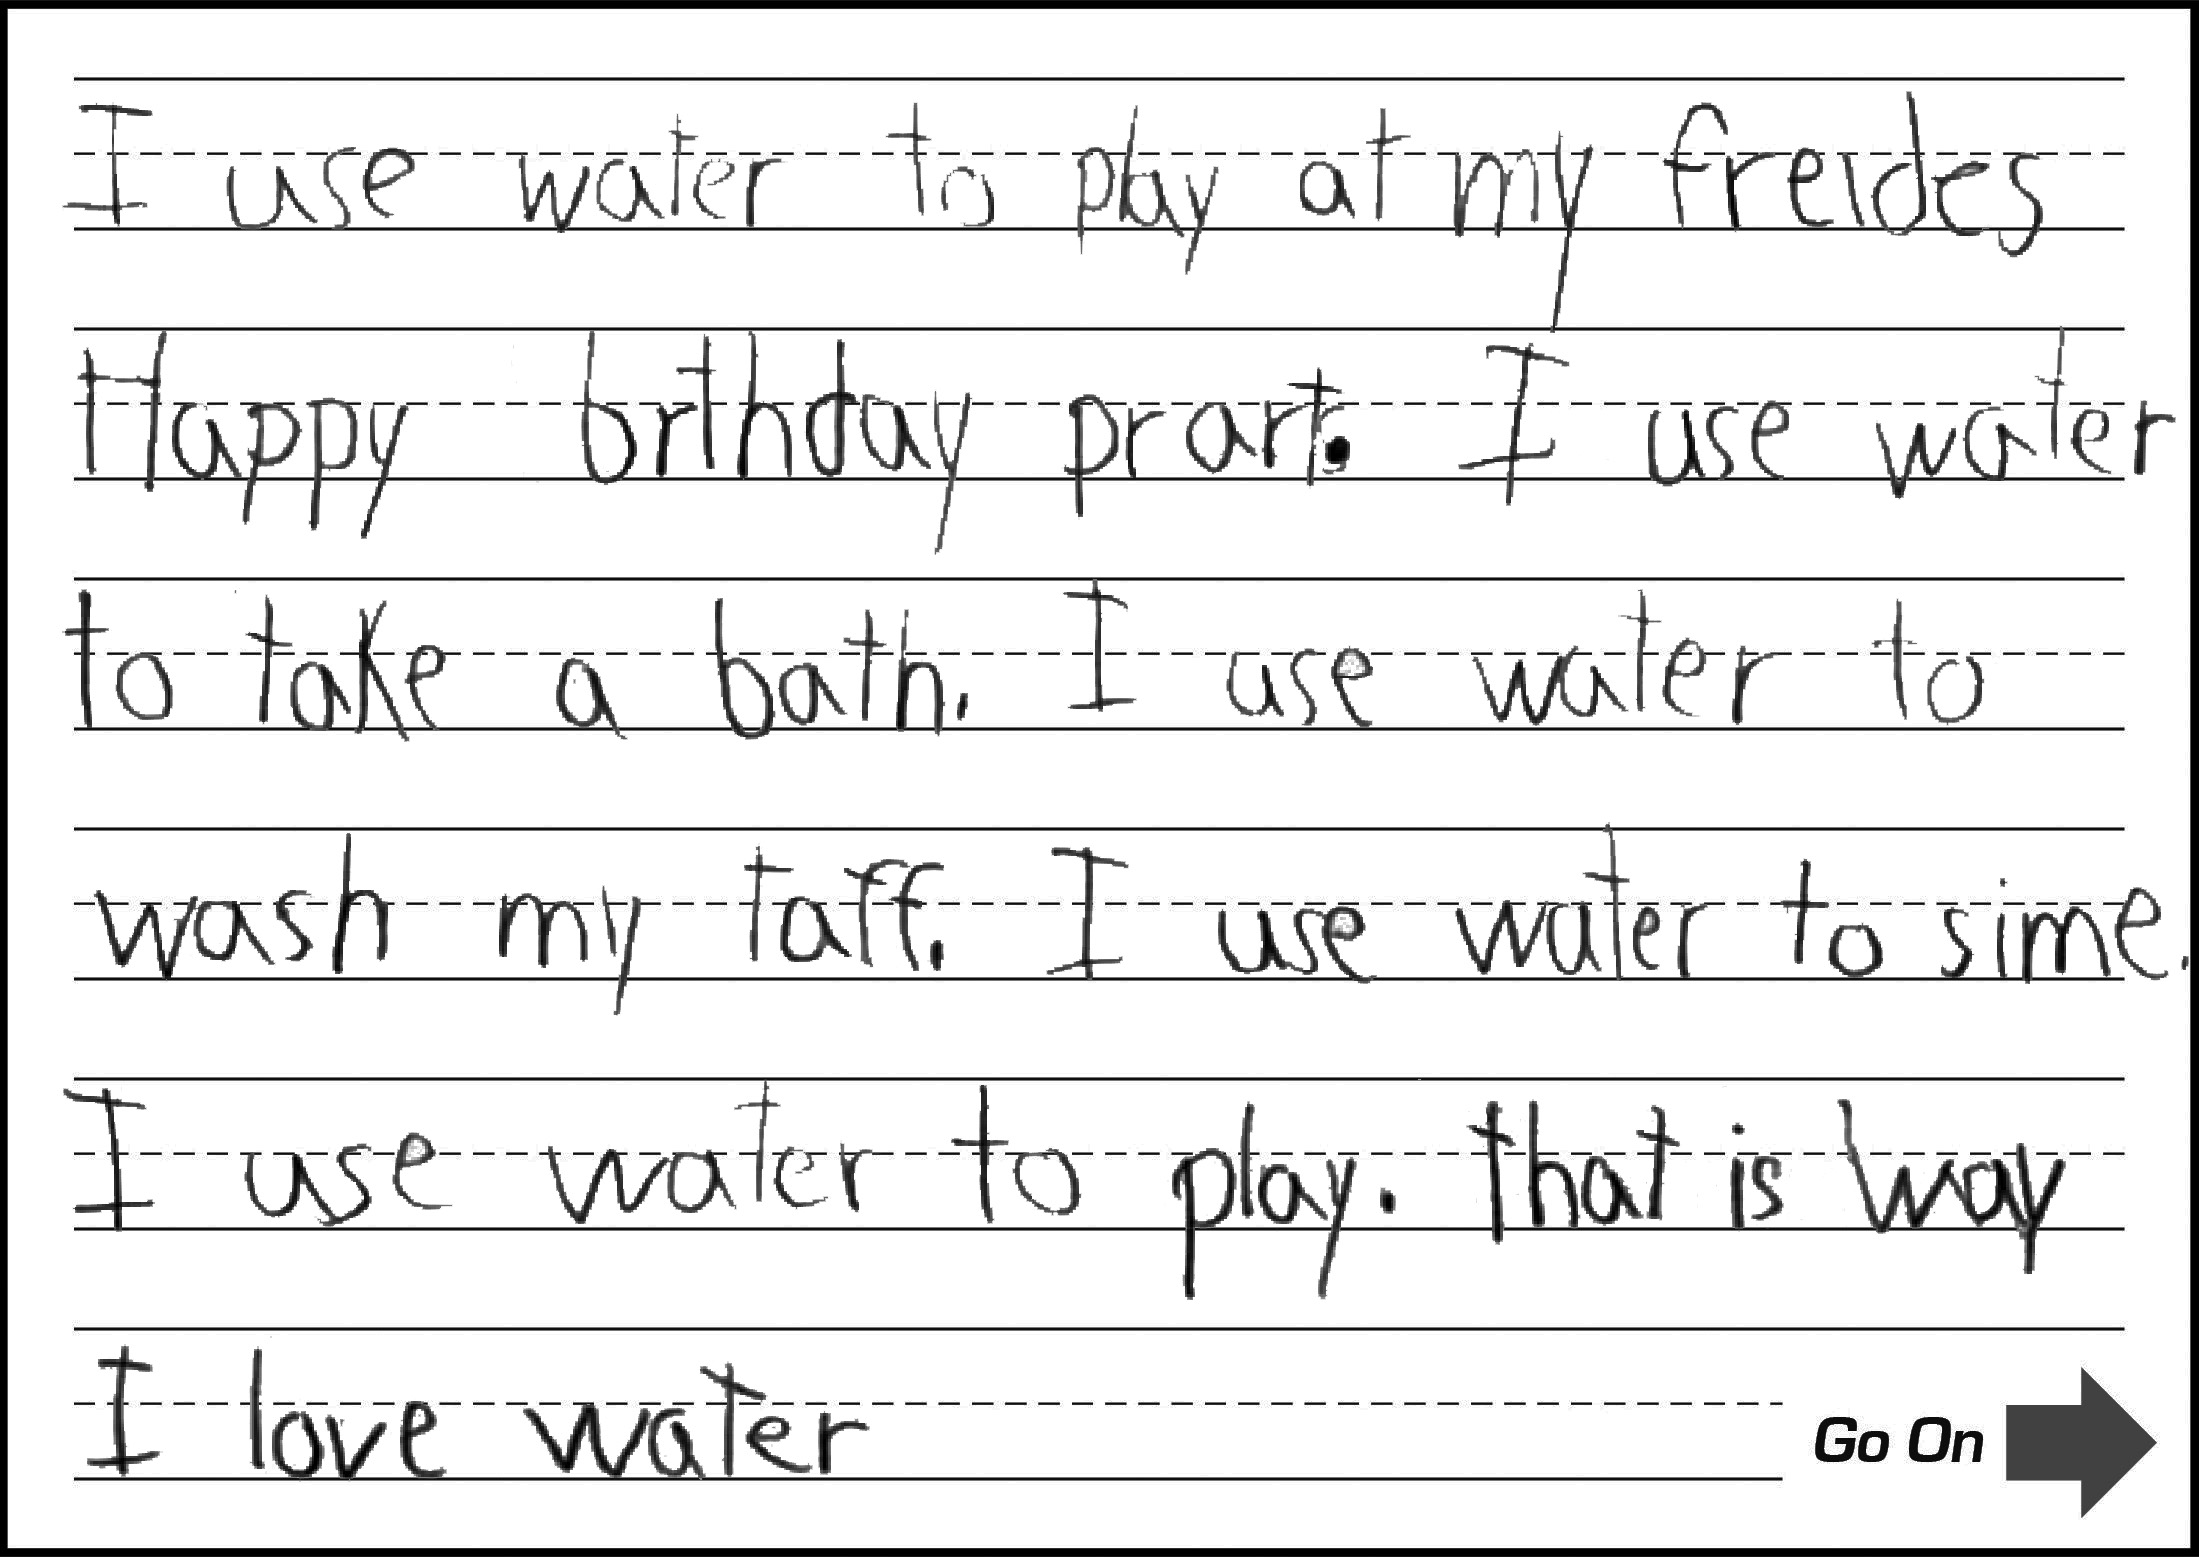 I use water to play at my freides
Happy brthday prart. I use water
to take a bath. I use water to
wash my taff. I use water to sime.
I use water to play. that is way
I love water
Go On